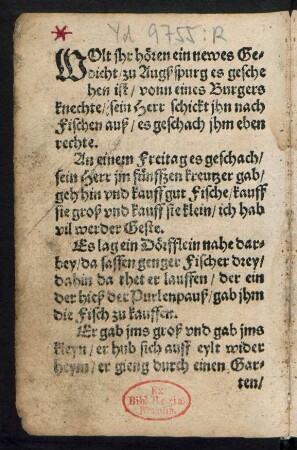 Yd 9755:R
WOlt jhr hören ein newes Ge⸗
dicht / zu Augſpurg es geſche
hen iſt / vonn eines Burgers
knechte / ſein Herr ſchickt jhn nach
Fiſchen auß / es geſchach jhm eben
rechte.
An einem Freitag es geſchach /
ſein Herr jm fünffzen kreutzer gab /
geh hin vnd kauff gut Fiſche / kauff
ſie groß vnd kauff ſie klein / ich hab
vil werder Geſte.
Es lag ein Dörfflein nahe dar⸗
bey / da ſaſſen genger Fiſcher drey /
dahin da thet er lauffen / der ein
der hieß der Purlenpauß / gab jhm
die Fiſch zu kauffen.
Er gab jms groß vnd gab jms
kleyn / er hub ſich auff eylt wider
heym / er gieng durch einen Gar⸗
ten /
Ex
Bibl. Regia
Berolin.